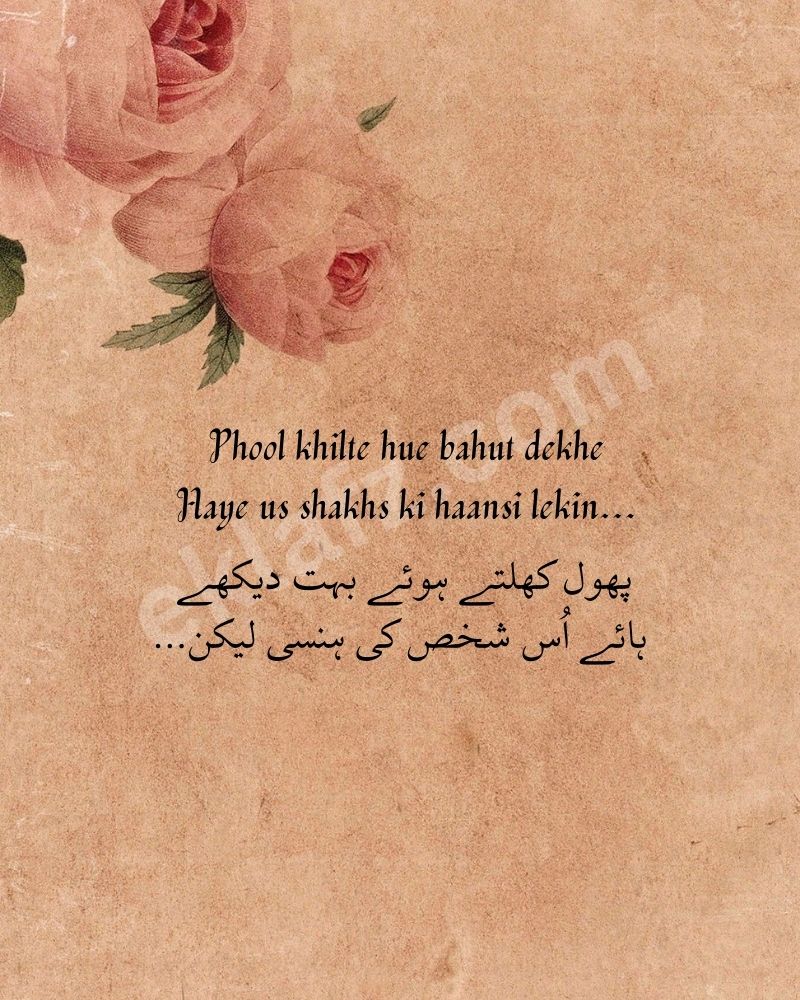 Phool khilte hue bahut dekhe
Haye us shakhs ki haansi lekin...
پھول کھلتے ہوئے بہت دیکھے
ہائے اُس شخص کی ہنسی لیکن...
eklafz.com